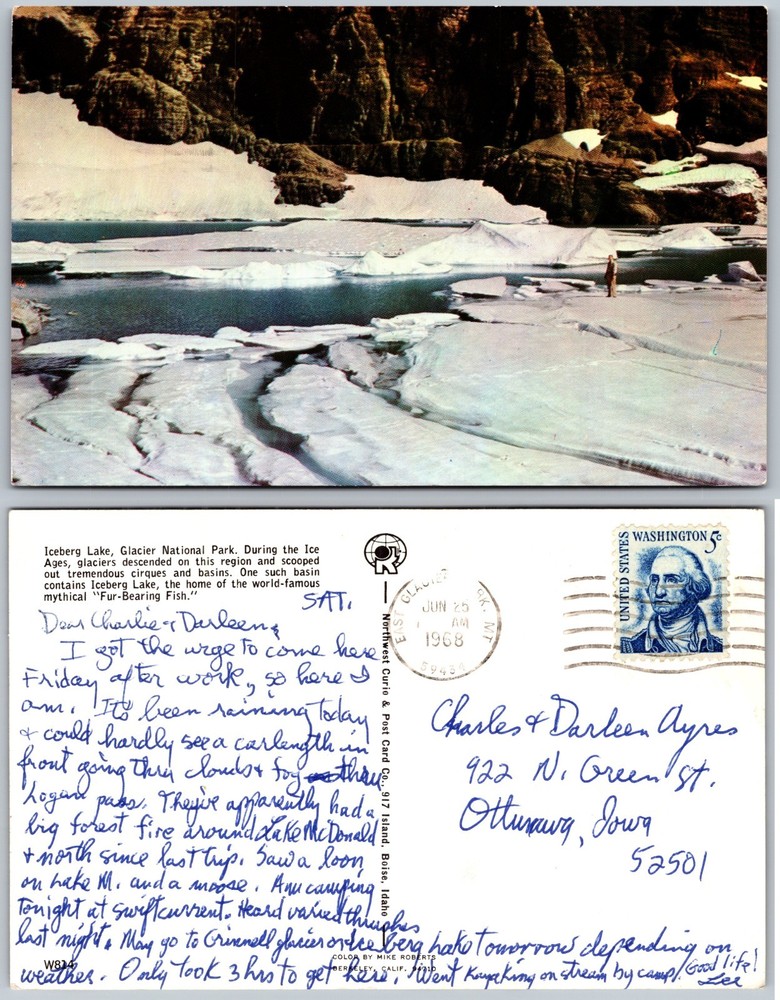 Iceberg Lake, Glacier National Park. During the Ice
Ages, glaciers descended on this region and scooped
out tremendous cirques and basins. One such basin
contains Iceberg Lake, the home of the world-famous
mythical "Fur-Bearing Fish."
SAT.
Dear Charlie & Darleen,
I got the urge to come here
Friday after work, so here I
am. It's been raining today
& could hardly see a carlength in
front going thru clouds & fog thru
Logan pass. They've apparently had a
big forest fire around Lake McDonald
& north since last trip. Saw a loon
on Lake M. and a moose. Am camping
tonight at Swiftcurrent. Heard varied thrushes
last night. May go to Grinnell glacier or Ice berg Lake tomorrow depending on
weather. Only took 3 hrs to get here. Went kayaking on stream by camp. Good life!
Lee
W814
COLOR BY MIKE ROBERTS
BERKELEY, CALIF. 94710
Northwest Curio & Post Card Co., 917 Island, Boise, Idaho
EAST GLACIER PARK, MT
JUN 25
AM
1968
59434
UNITED STATES
WASHINGTON 5c
Charles & Darleen Ayres
922 N. Green St.
Ottumwa, Iowa
52501